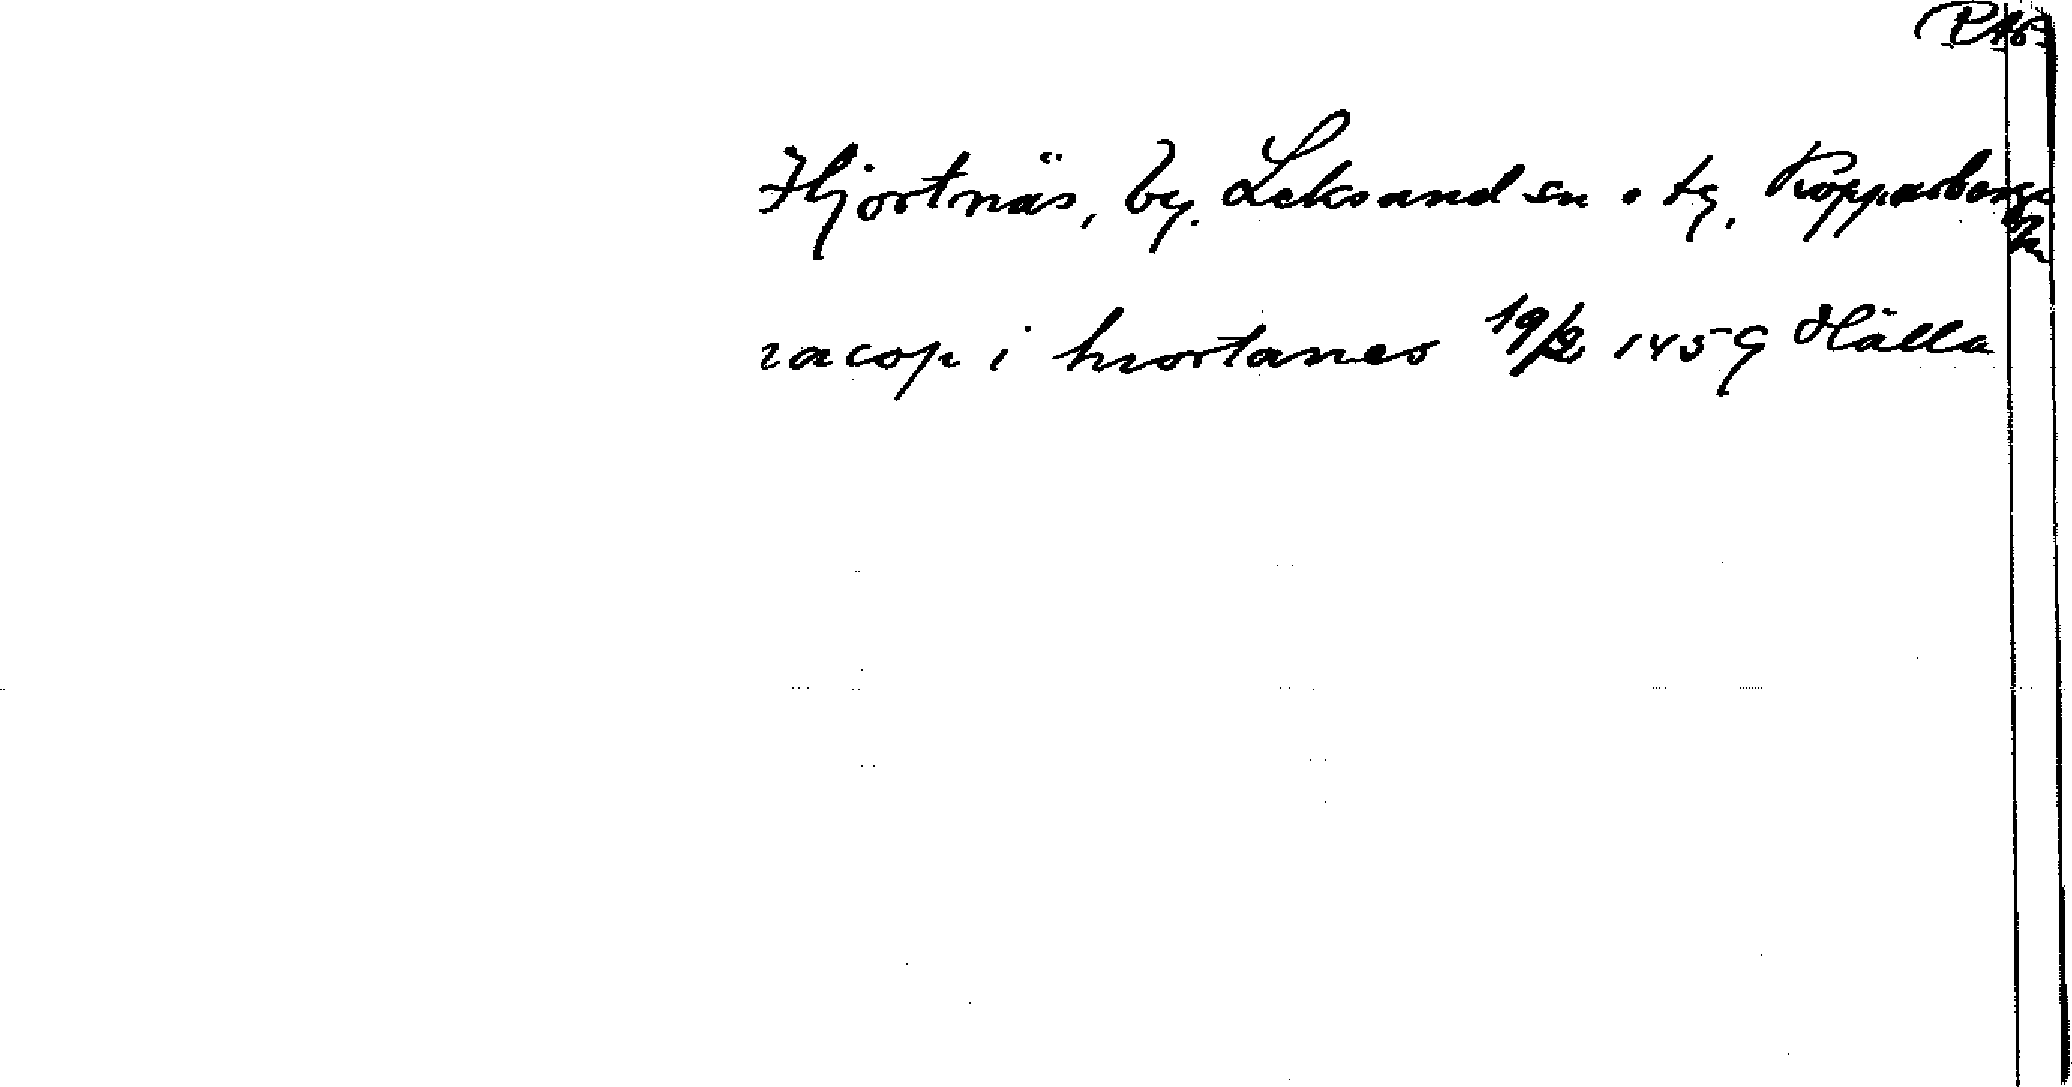 RAp
Hjortnäs, by. Leksand sn o tg, Kopparbergs
ln
iacop i hiortanes 19/2 1459 Hälla